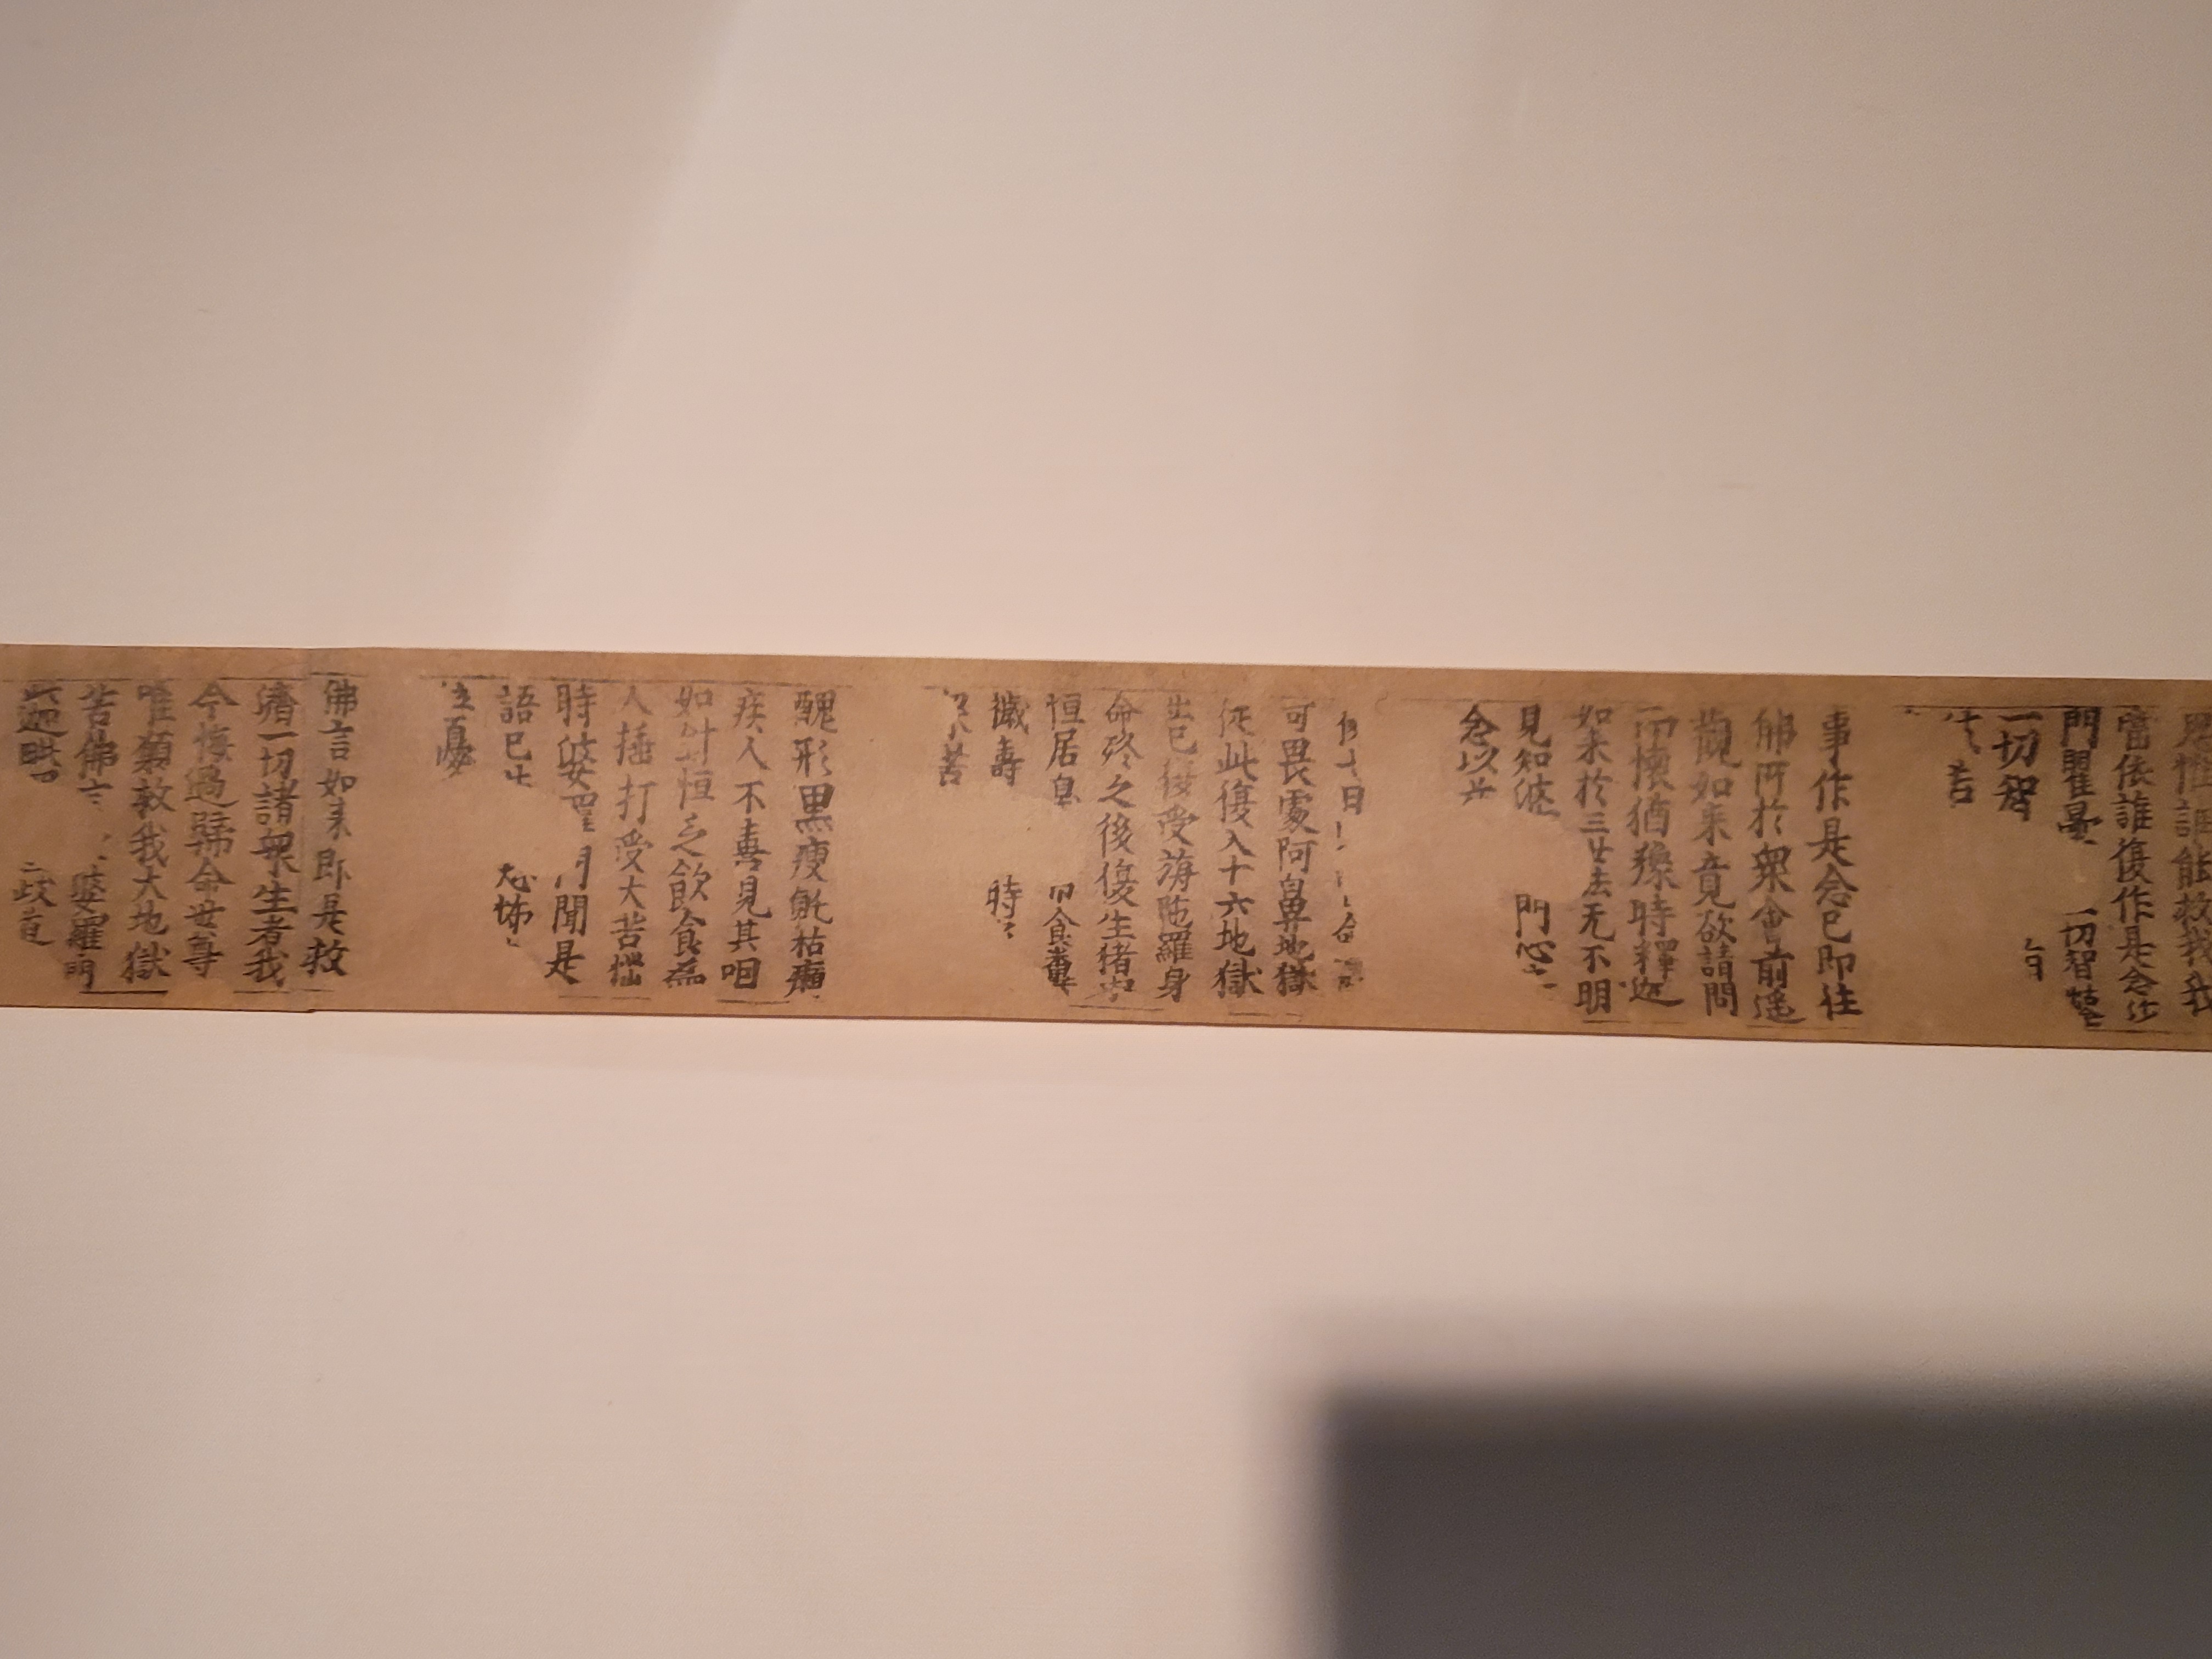 惱誰能救我我
當依誰復作是念沙
門瞿曇一切智
一切智
苦
事作是念已即往
佛所於衆會前遥
觀如来竟欲請問
而懷猶豫時釋迦
如来於三世法无不明
見知婆門心
念以
日命
可畏處阿鼻地獄
從此復入十六地獄
出已後受旃陁羅身
命終之後復生猪中
恒居食糞
壽時
苦
醜形黒瘦乾枯癩
疾人不憙見其咽
如針恒乏飲食為
人捶打受大苦惱
時婆聞是
語已怖
憂
佛言如来即是救
濟一切諸衆生者我
今悔過歸命世尊
唯願救我大地獄
苦佛婆羅門
迦